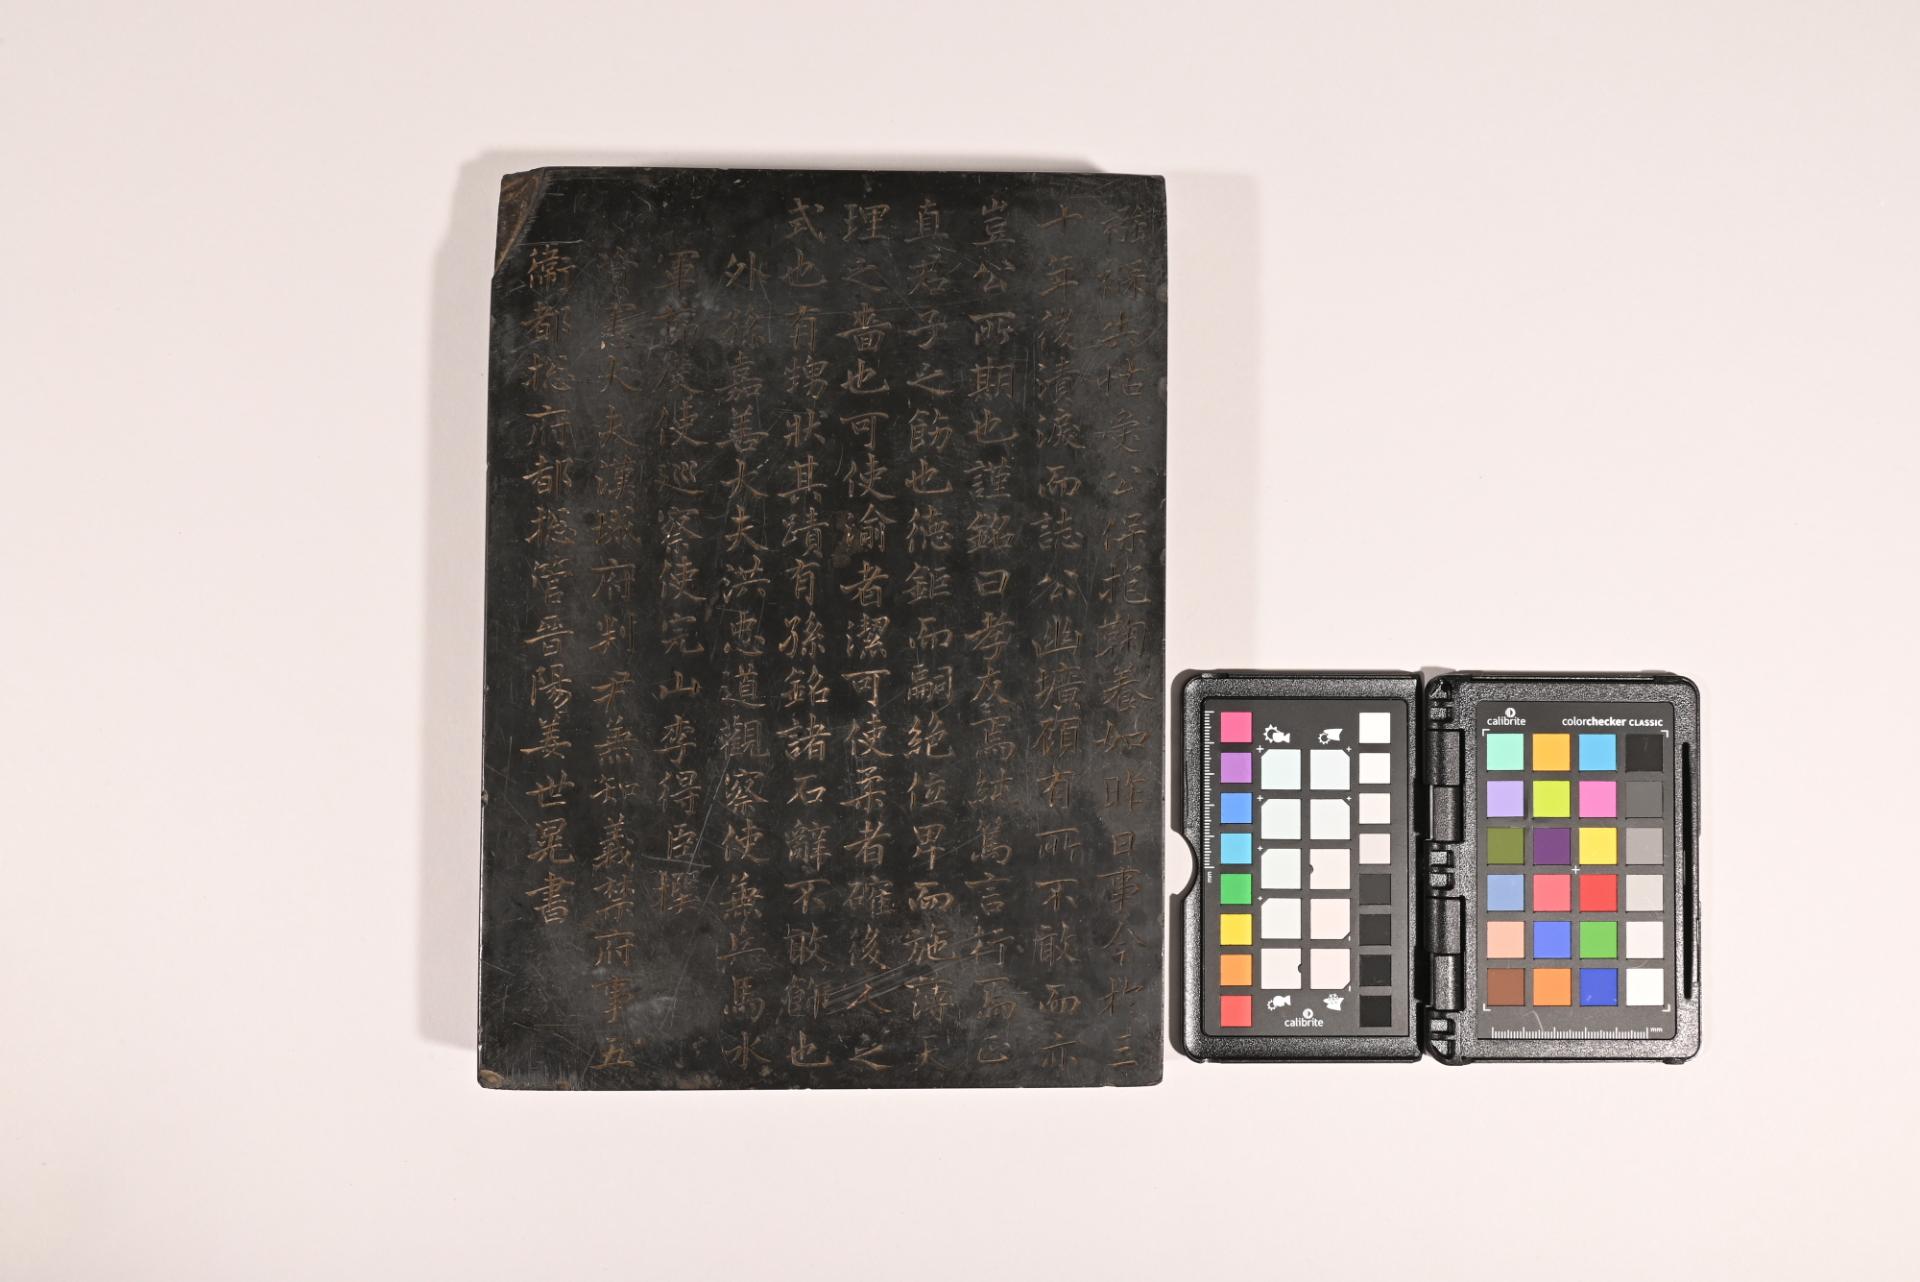 襁褓失怙公保抱鞠養如昨日事今於三
十年後漬淚而誌公幽壙顧有所不敢而亦
豈公所期也謹銘曰孝友焉篤言行焉正
直君子之飭也德鉅而嗣絶位卑而施薄天
理之嗇也可使渝者潔可使柔者確後人之
式也有甥狀其蹟有孫銘諸石辭不敢飾也
外孫嘉善大夫洪忠道觀察使兼兵馬水
軍節度使巡察使完山李得臣撰
資憲大夫漢城府判尹兼知義禁府事五
衛都捴府都捴管晉陽姜世晃書
mm
calibrite
calibrite
colorchecker CLASSIC
mm